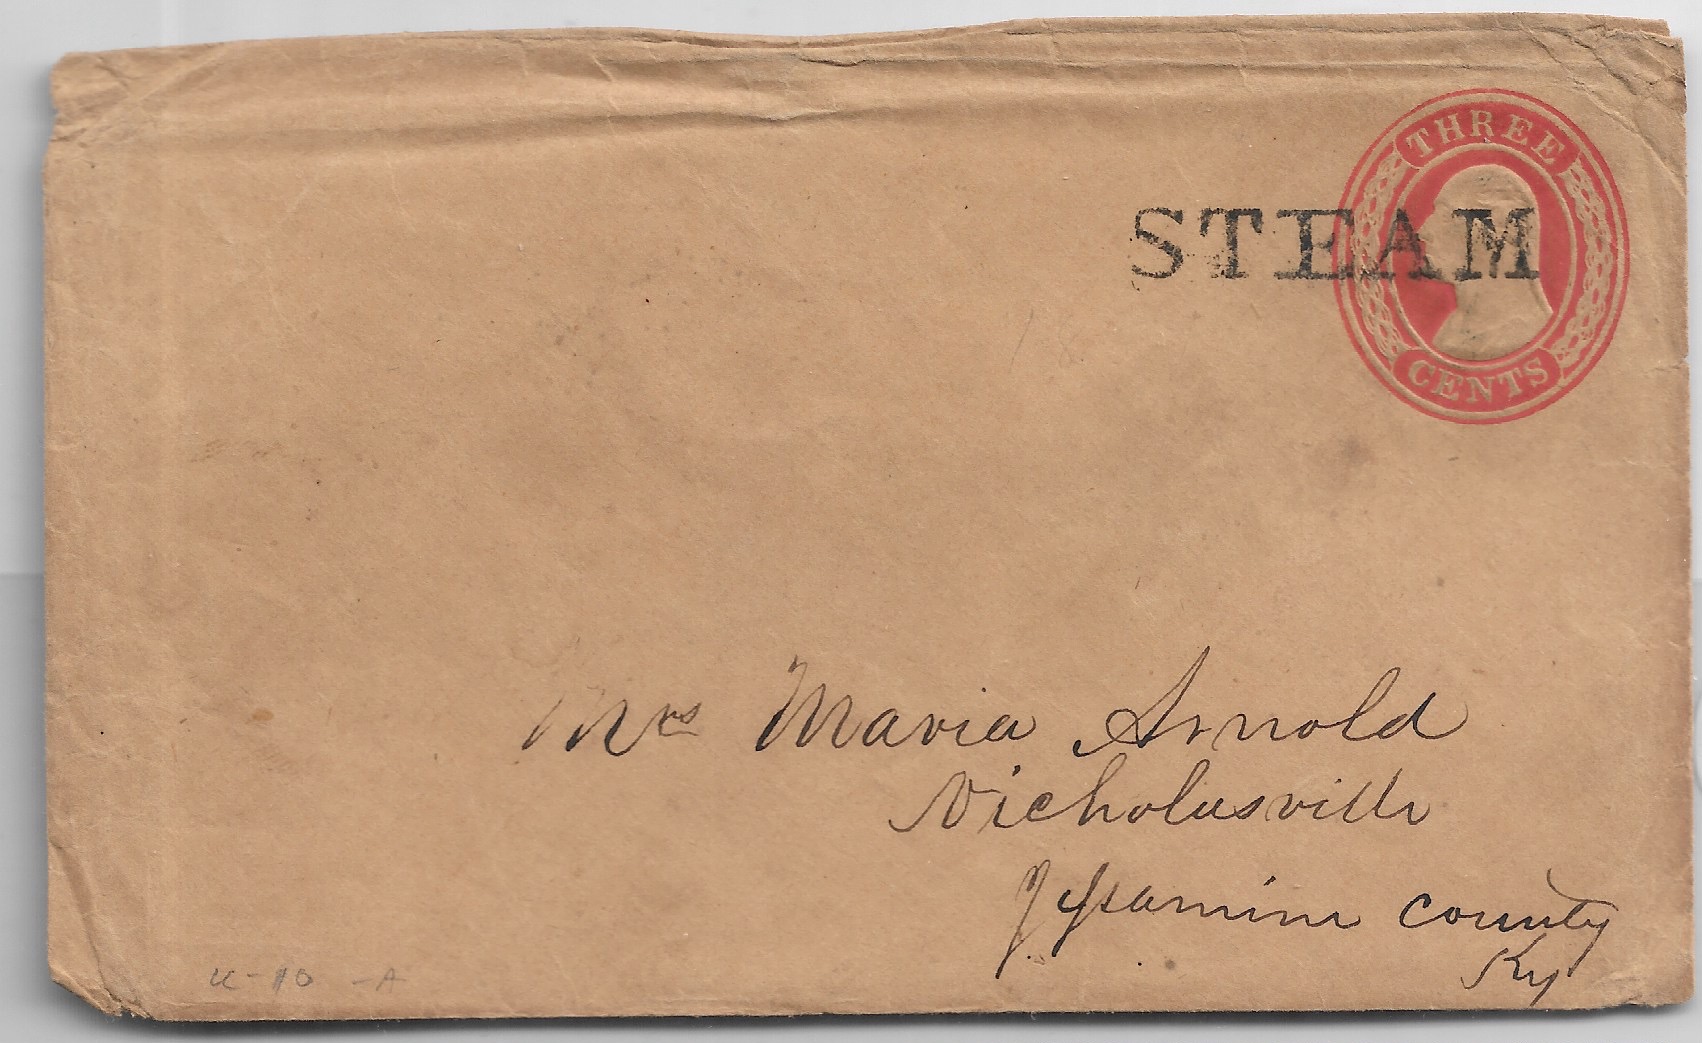 THREE
STEAM
CENTS
Mrs Maria Arnold
Nicholusville
Jessamine County
Ky
U-10 -A